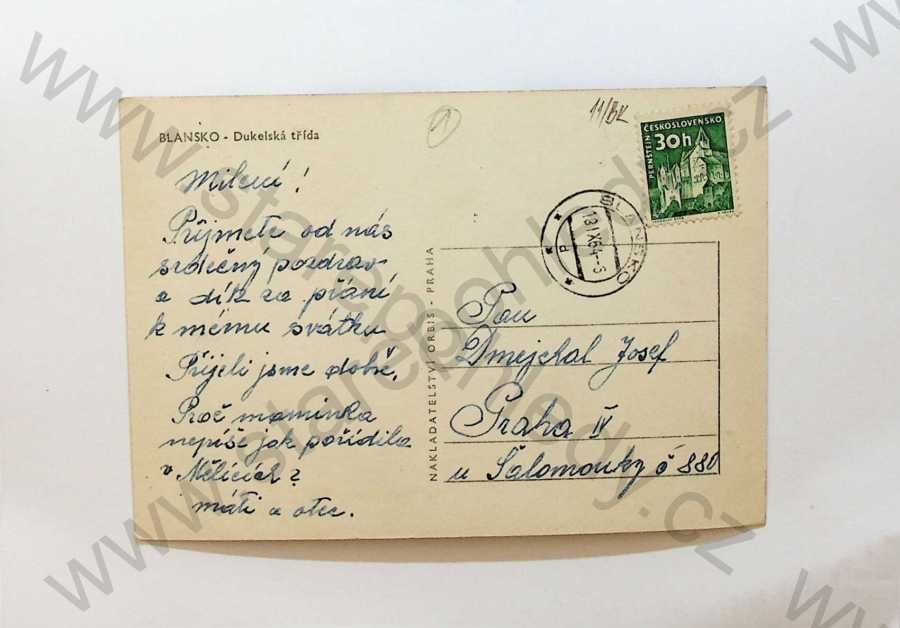 BLANSKO - Dukelská třída
11/BK
PERNŠTEJN
ČESKOSLOVENSKO
30h
BLANSKO
18 IX 64 - S
a
Milení!
Přijměte od nás
srdečný pozdrav
a dík za přání
k mému svátku
Přijeli jsme dobře.
Proč maminka
nepíše jak pořídila
v Mělicích?
máti a otec.
NAKLADATELSTVÍ ORBIS - PRAHA
Pan
Dmejchal Josef
Praha IV
u Šalomounky č 880
www.starepohledy.cz